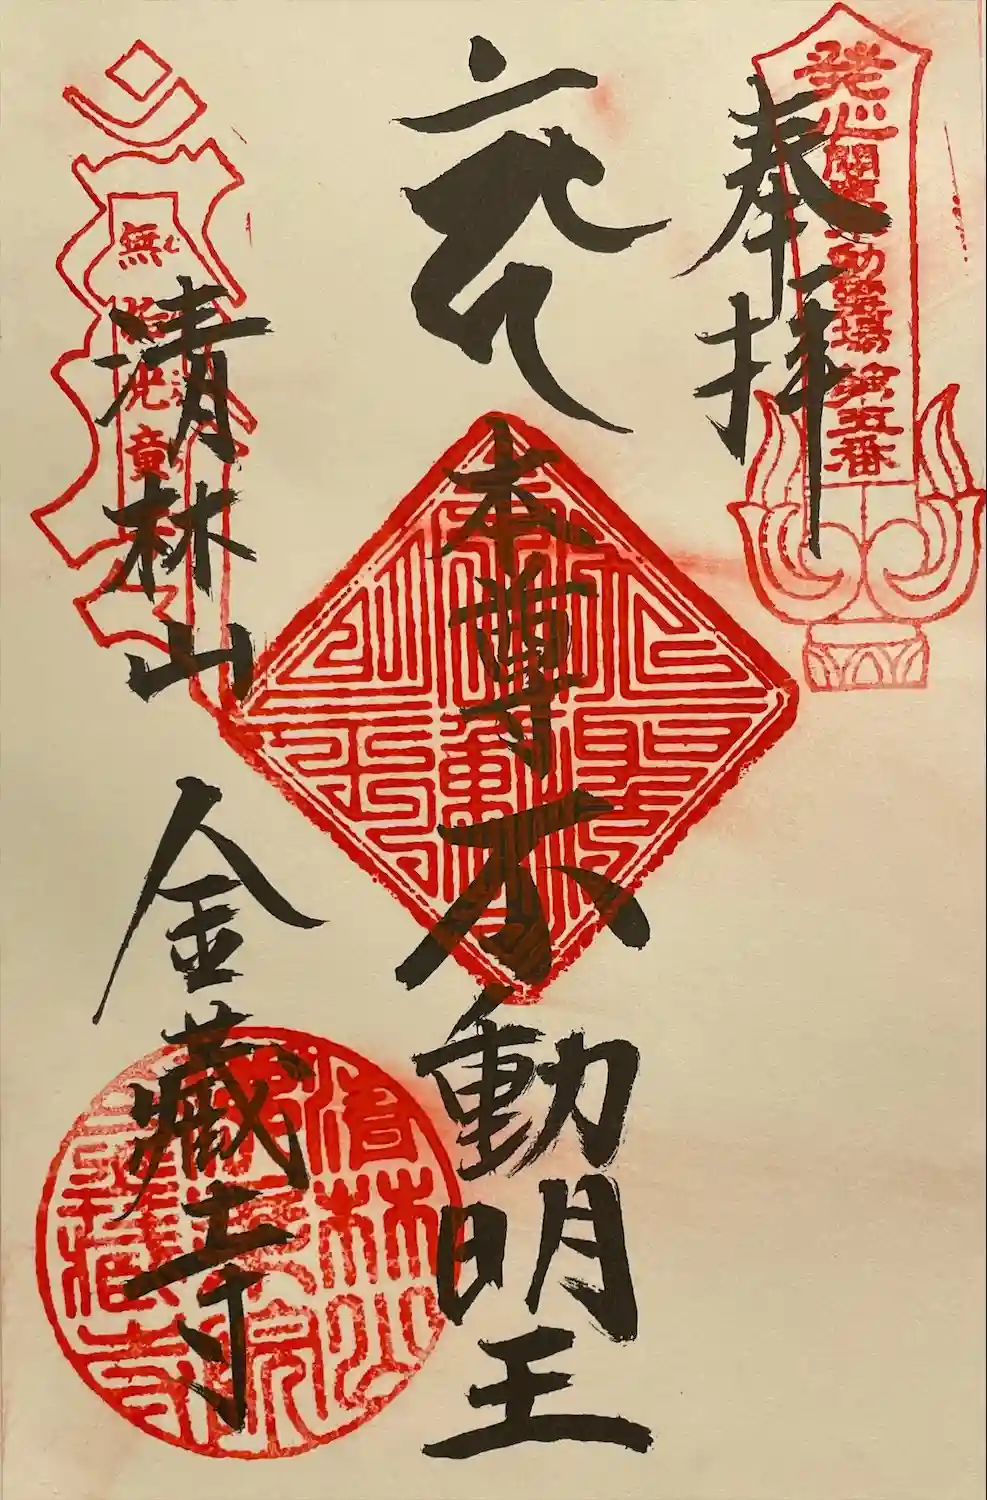 奉拝
発心関東不動霊場第五番
本尊不動明王
清林山 金蔵寺
無
光童
清林山
佛乗院
金蔵寺